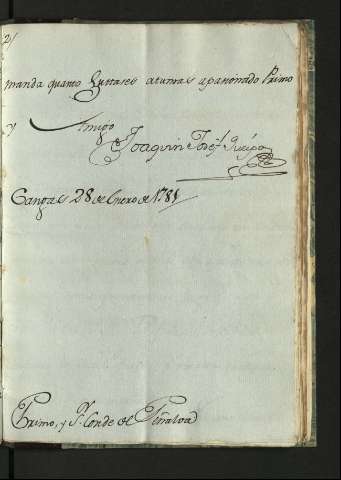 2)
manda quanto gustases atu mas apasionado Primo
y Amigo
Joaquin Josef Queipo
Cangas 28 de Enero de 1781
Primo, y Sr. Conde de Peñalva